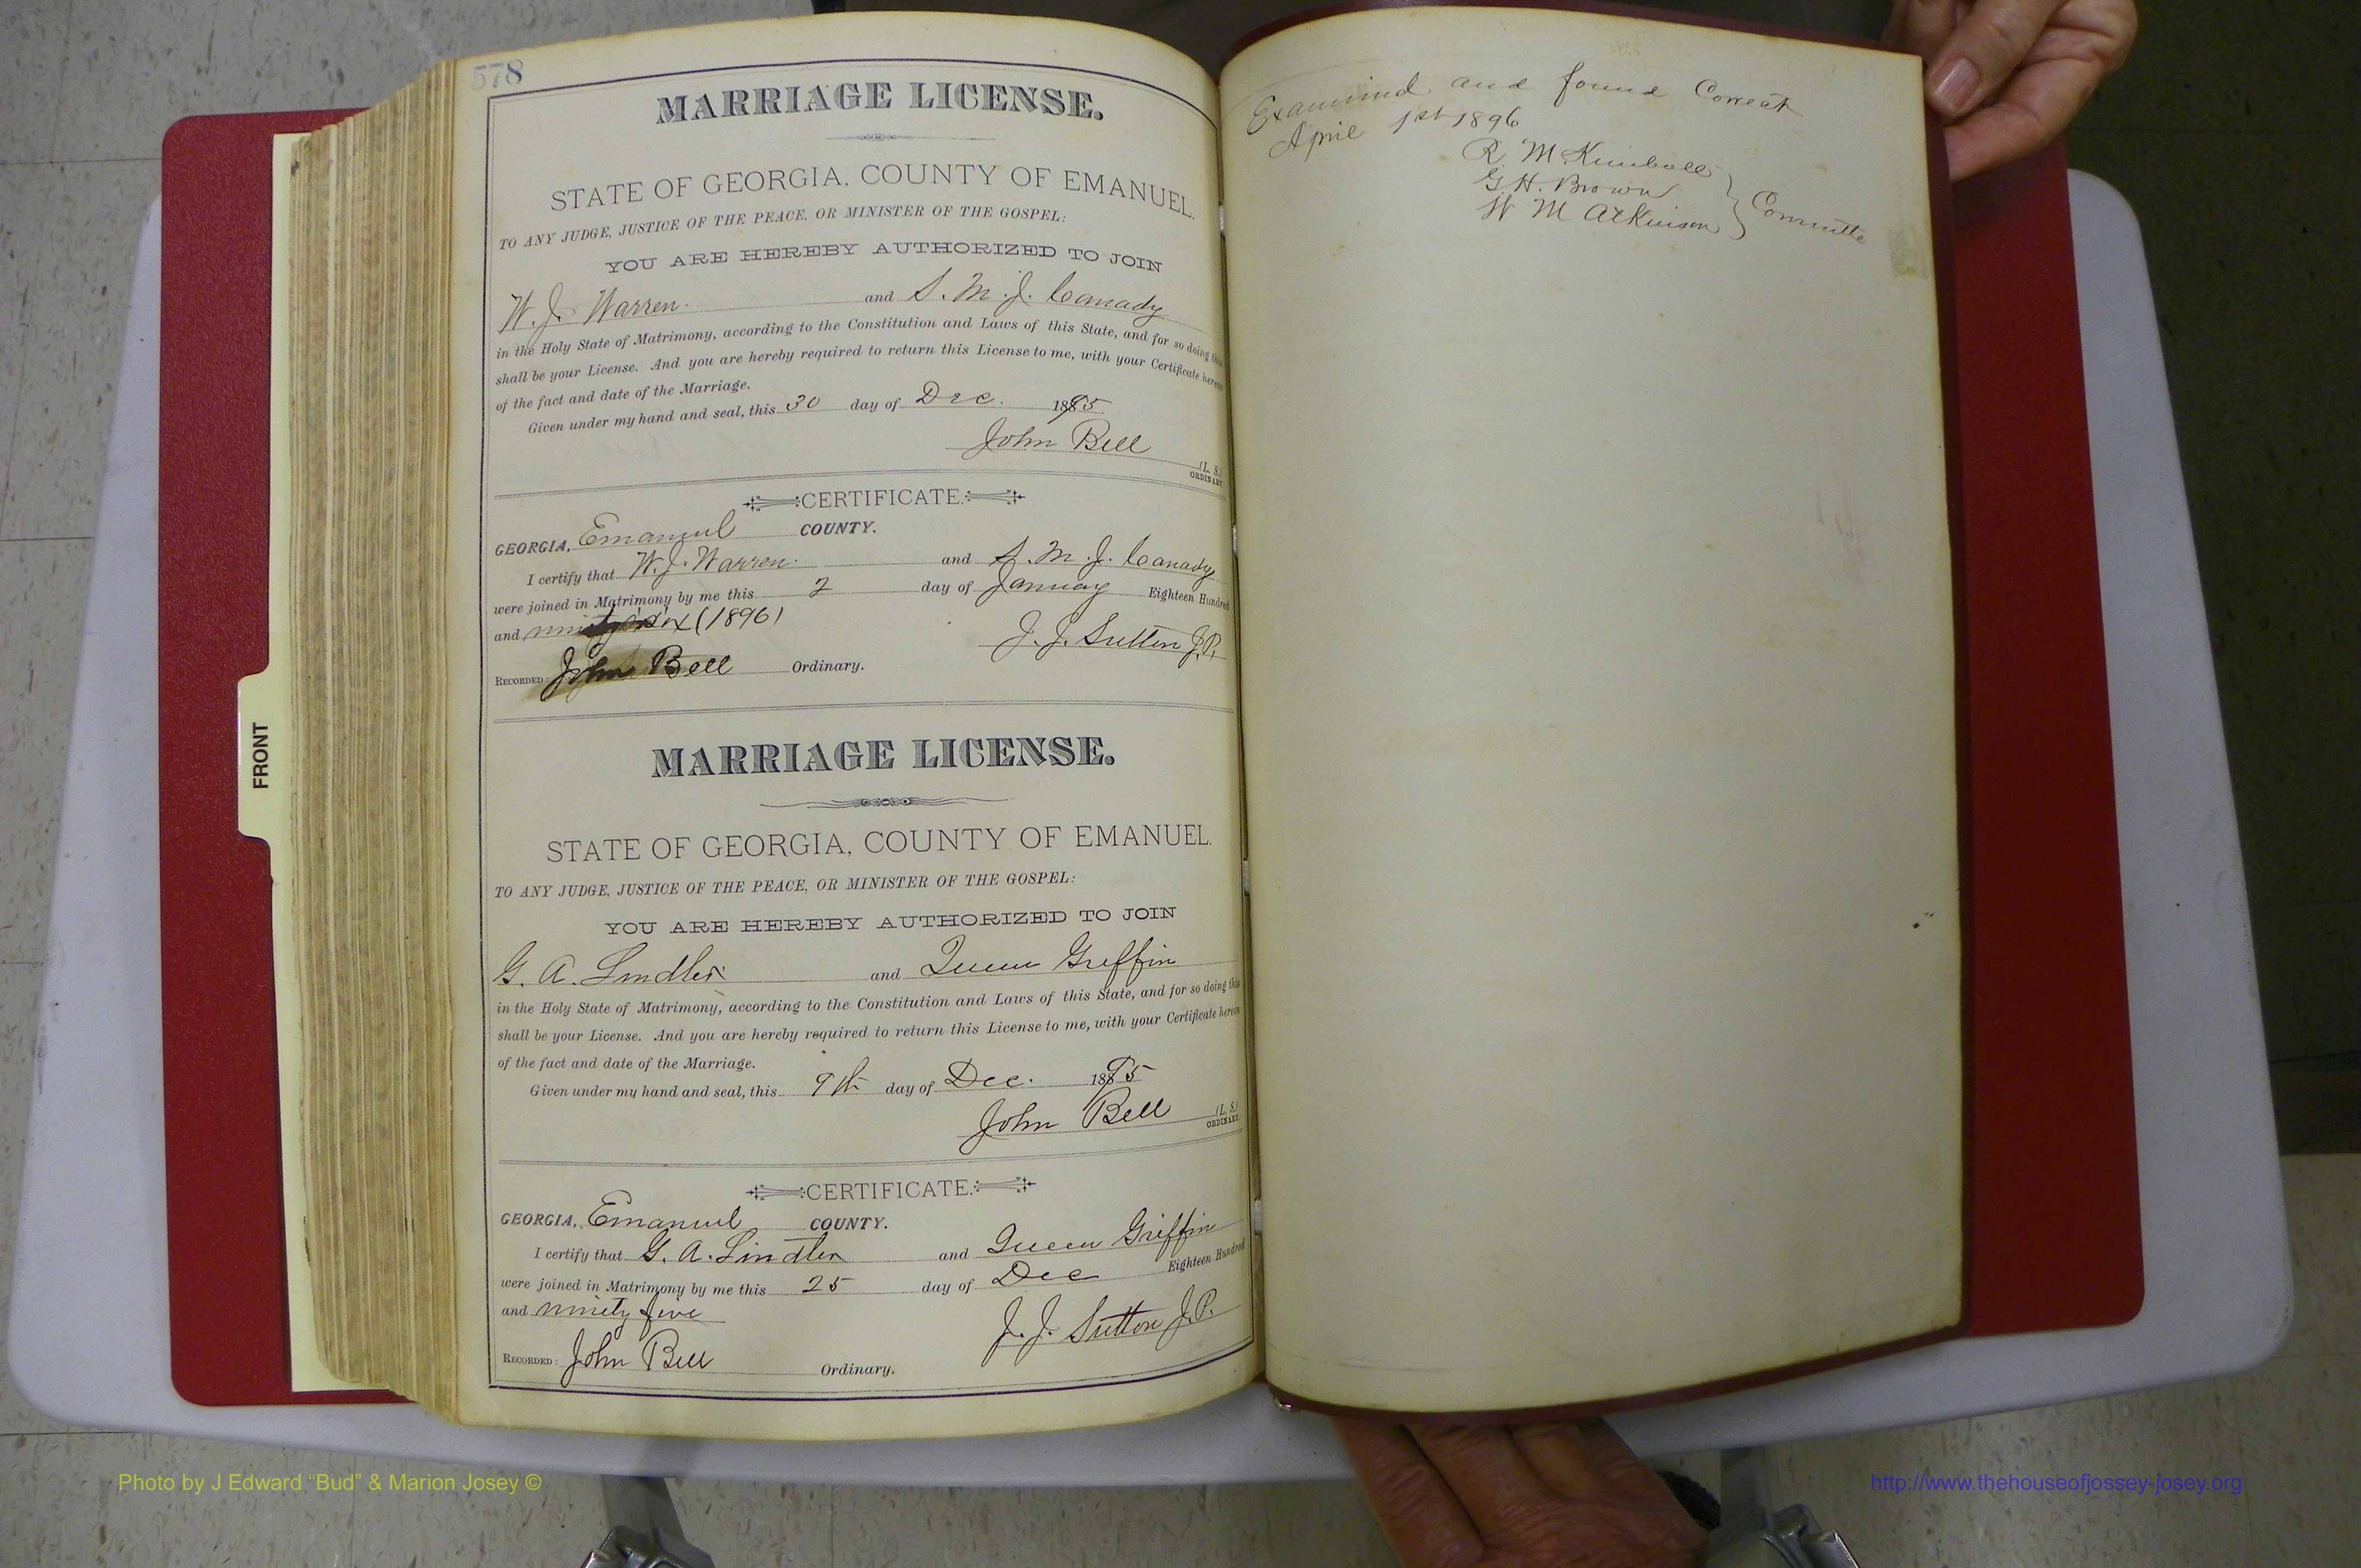 578
MARRIAGE LICENSE.
STATE OF GEORGIA, COUNTY OF EMANUEL.
TO ANY JUDGE, JUSTICE OF THE PEACE, OR MINISTER OF THE GOSPEL:
YOU ARE HEREBY AUTHORIZED TO JOIN
W. J. Warren and S. M. J. Canady
in the Holy State of Matrimony, according to the Constitution and Laws of this State, and for so doing this
shall be your License. And you are hereby required to return this License to me, with your Certificate hereon
of the fact and date of the Marriage.
Given under my hand and seal, this 30 day of Dec. 1895
John Bell
(L. S.)
ORDINARY.
CERTIFICATE.
GEORGIA, Emanuel COUNTY.
I certify that W. J. Warren and S. M. J. Canady
were joined in Matrimony by me this 2 day of January Eighteen Hundred
and ninety six (1896)
J. J. Sutton J.P.
RECORDED: John Bell Ordinary.
MARRIAGE LICENSE.
STATE OF GEORGIA, COUNTY OF EMANUEL.
TO ANY JUDGE, JUSTICE OF THE PEACE, OR MINISTER OF THE GOSPEL:
YOU ARE HEREBY AUTHORIZED TO JOIN
G. A. Lindler and Queen Griffin
in the Holy State of Matrimony, according to the Constitution and Laws of this State, and for so doing this
shall be your License. And you are hereby required to return this License to me, with your Certificate hereon
of the fact and date of the Marriage.
Given under my hand and seal, this 9th day of Dec. 1895
John Bell
(L. S.)
ORDINARY.
CERTIFICATE.
GEORGIA, Emanuel COUNTY.
I certify that G. A. Lindler and Queen Griffin
were joined in Matrimony by me this 25 day of Dec Eighteen Hundred
and ninety five
J. J. Sutton J.P.
RECORDED: John Bell Ordinary.
Examined and found Correct
April 1st 1896
R. M. Kimball
G. H. Brown
W M Atkinson
Committe
FRONT
Photo by J Edward “Bud” & Marion Josey ©
http://www.thehouseofjossey-josey.org